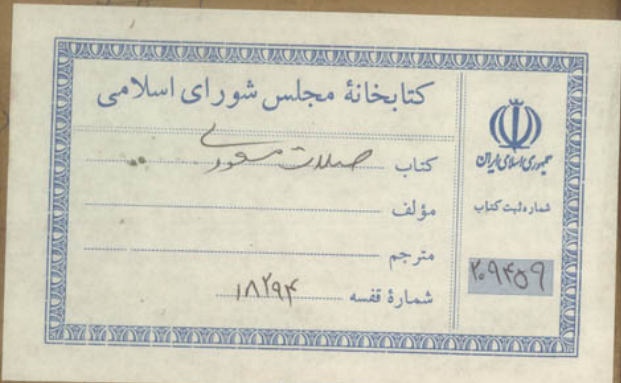 کتابخانهٔ مجلس شورای اسلامی
کتاب صلات مسعودی
مؤلف
مترجم
شمارهٔ قفسه ۱۸۲۹۴
جمهوری اسلامی ایران
شماره ثبت کتاب
۲۰۹۴۵۹